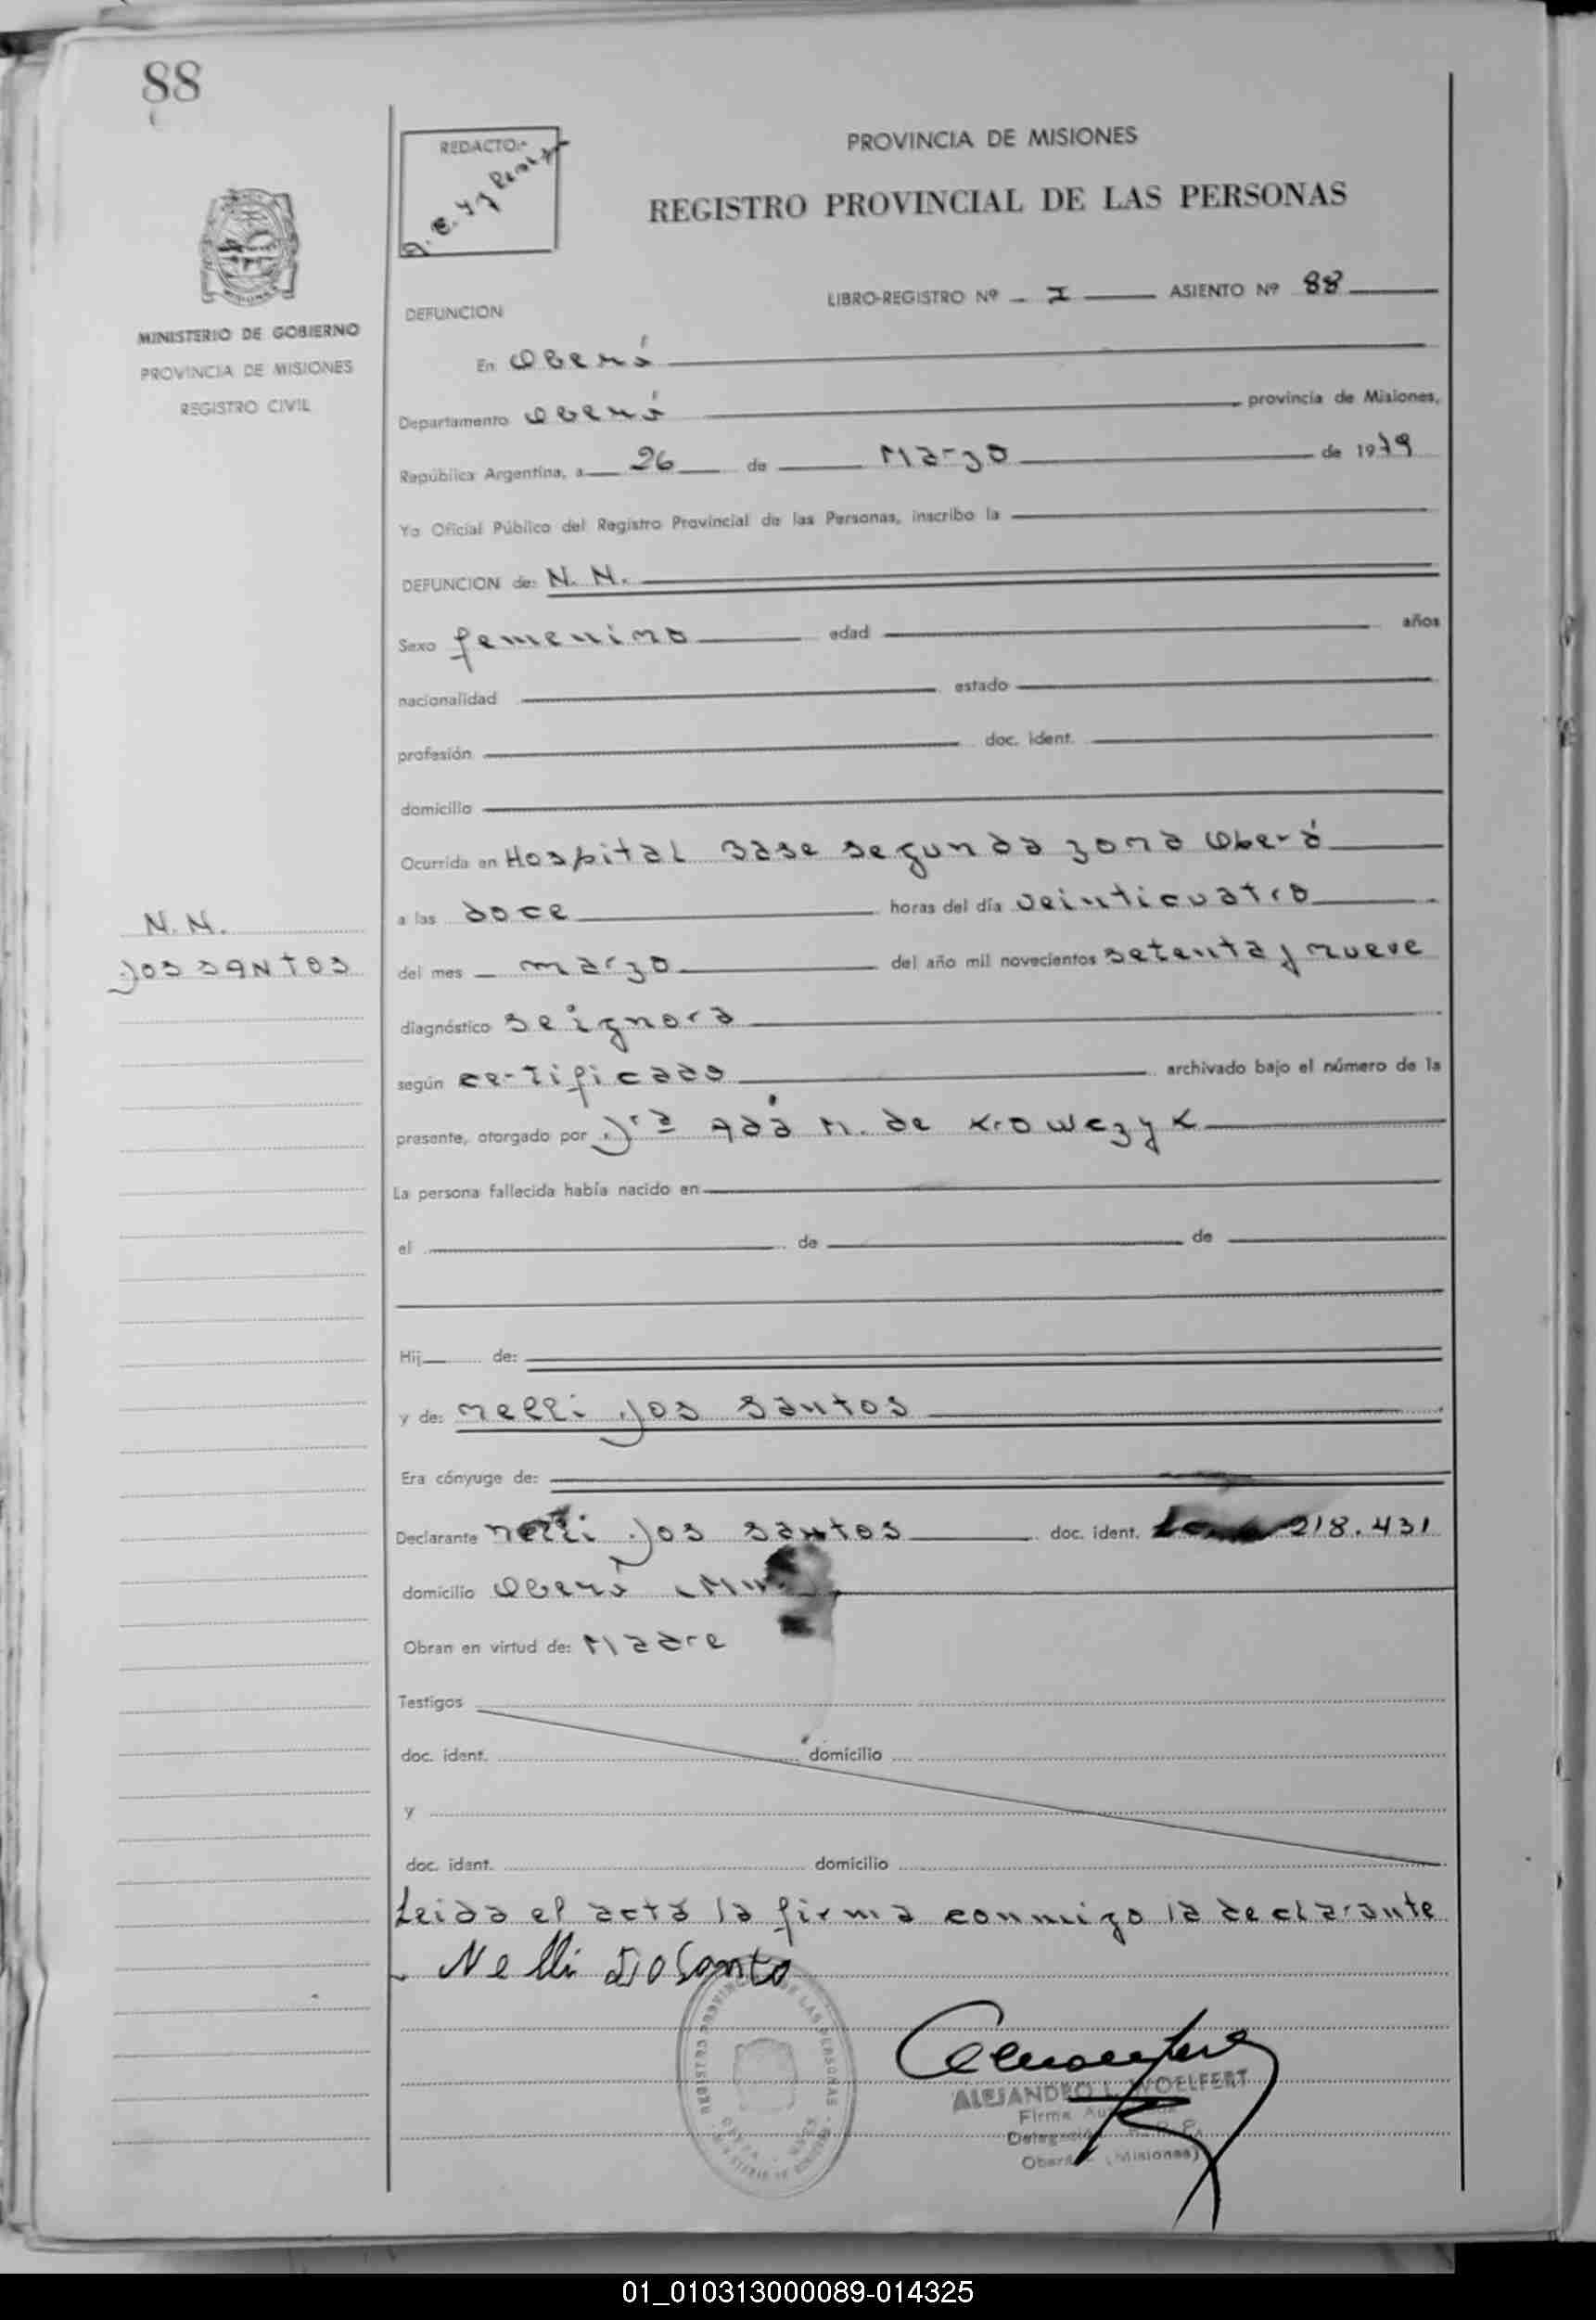 88
REDACTO:-
PROVINCIA DE MISIONES
REGISTRO PROVINCIAL DE LAS PERSONAS
MINISTERIO DE GOBIERNO
PROVINCIA DE MISIONES
REGISTRO CIVIL
LIBRO-REGISTRO Nº I ASIENTO Nº 88
DEFUNCION
En Oberá
Departamento Oberá provincia de Misiones,
República Argentina, a 26 de Marzo de 1979
Yo Oficial Público del Registro Provincial de las Personas, inscribo la
DEFUNCION de: N. N.
Sexo femenino edad años
nacionalidad estado
profesión doc. ident.
domicilio
Ocurrida en Hospital Base segunda zona Oberá
N.N.
Dos SANtos
a las doce horas del día veinticuatro
del mes marzo del año mil novecientos setenta y nueve
diagnóstico se ignora
según certificado archivado bajo el número de la
presente, otorgado por Dra Ada M. de Krowczyk
La persona fallecida había nacido en
el de de
Hij de:
y de: Nelli Dos Santos
Era cónyuge de:
Declarante Nelli Dos Santos doc. ident. 218.431
domicilio Oberá
Obran en virtud de: Madre
Testigos
doc. ident. domicilio
y
doc. ident. domicilio
Leida el acta la firma conmigo la declarante
Nelli Do Santo
REGISTRO PROVINCIAL DE LAS PERSONAS
ALEJANDRO L. WOELFERT
Firma
Oberá (Misiones)
01_010313000089-014325